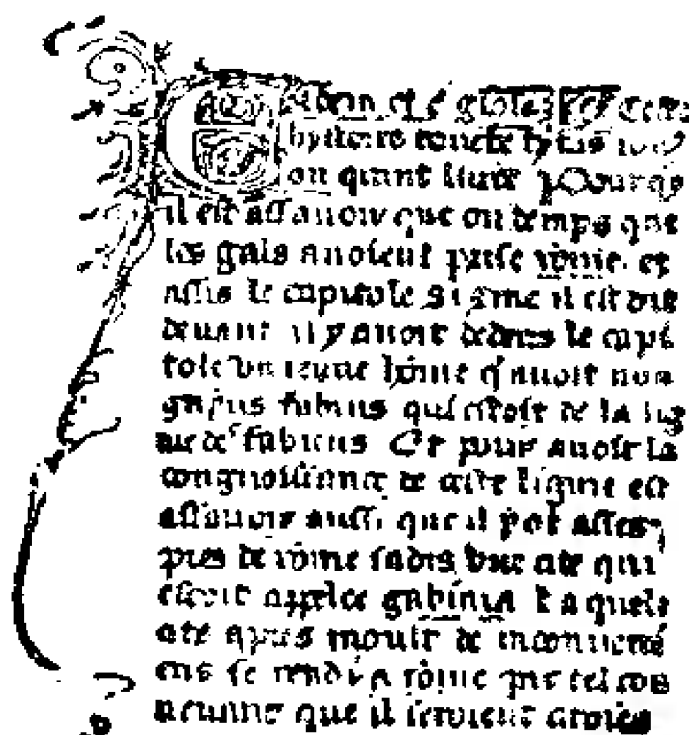 hystoire touche tytus
on quint liure
il est assauoir que ou temps que
les gals auoient prise rōme et
assis le capitole sigme il est dit
deuant il y auoit dedens le capi
tole vn ieune hōme q̄ auoit nom
gayus fabius qui estoit de la lig
nie des fabiens Et pour auoir la
congnoissance de ceste lignie est
assauoir aussi que il y ot asses
pres de rōme iadis vne cite qui
estoit appelee gabinia La quele
cite apres moult de inconueniē
ens se rendi a rōme par tel con
uenant que il seroient